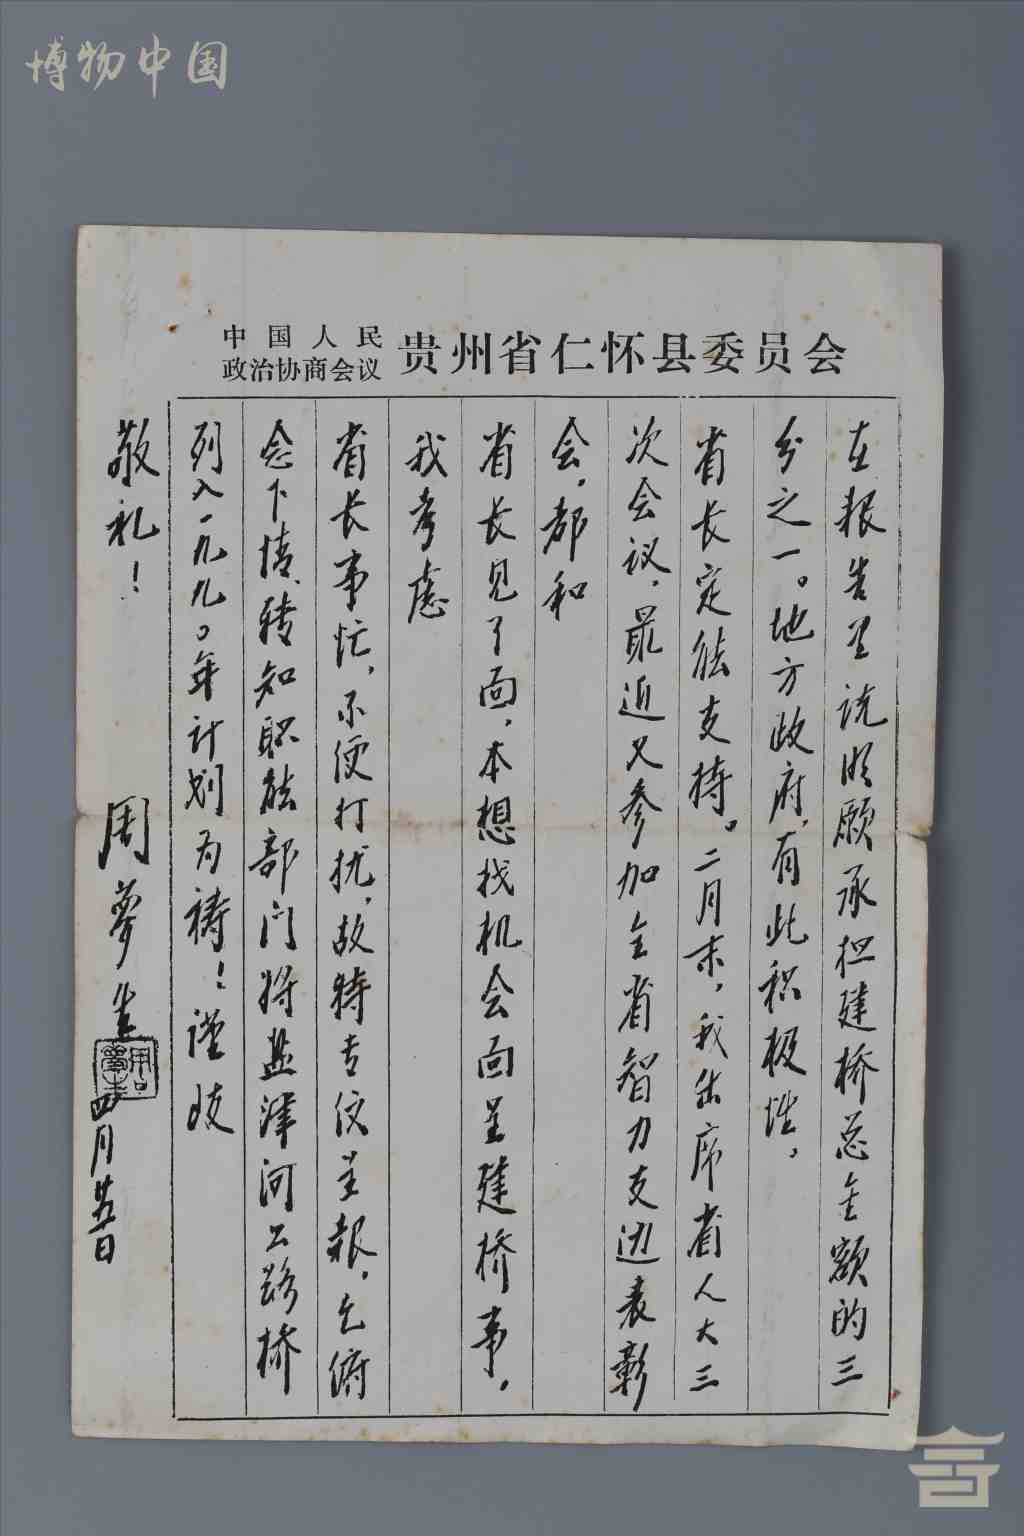 博物中国
中国人民
政治协商会议
贵州省仁怀县委员会
在报告里说明愿承担建桥总金额的三
分之一。地方政府有此积极性，
省长定能支持。二月末，我出席省人大三
次会议，最近又参加全省智力支边表彰
会，都和
省长见了面，本想找机会面呈建桥事，
我考虑
省长事忙，不便打扰，故特专仪呈报，乞俯
念下情，转知职能部门将盐津河公路桥
列入一九九〇年计划为祷！谨致
敬礼！
周梦生
四月廿五日